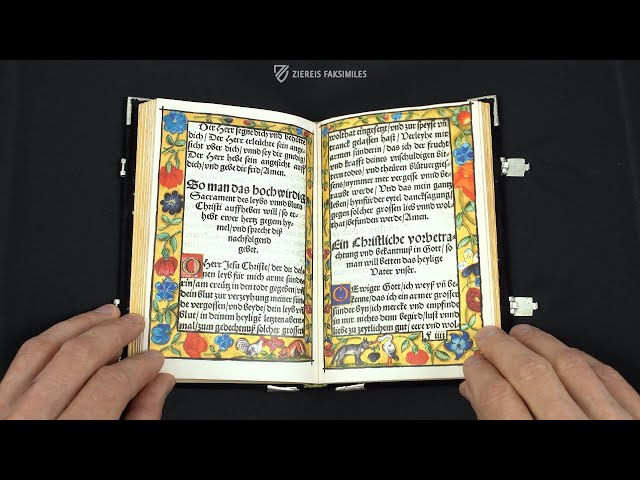 ZIEREIS FAKSIMILES
Der Herr segne dich vnd behütte
dich/ Der Herr erleüchte sein ange-
sicht vber dich/ vnnd sey dir gnedig/
Der Herr hebe sein angesicht auff
dich/ vnd gebe dir frid/ Amen.
So man das hochwirdig
Sacrament des leybs vnnd bluts
Christi auffheben will/ so er-
hebt ewer hertz gegen hy-
mel/ vnd sprecht diß
nachfolgend
gebet.
O Herr Jesu Christe/ der du dei-
nen leyb für mich arme sünde-
rin/ am creütz in den todt gegeben/ vñ
dein blut zur verzeyhung meiner sün-
de vergossen/ vnd beyde/ deinen leyb
vnd blut/ in deinem heylige letzten aben-
mal/ zum gedechtnuß solcher grossen
wolthat eingesetzt/ vnd zur speyse vñ
tranck gelassen hast/ Verleyhe mir
armen sünderin/ das ich der frucht
vnd krafft deines vnschuldigen bit-
tern todes/ vnd theüren blutuergies-
sens/ nymmer mer vergesse vnnd be-
raubt werde/ Vnd das mein gantz
leben/ hynfür der eytel dancksagung/
gegen solcher grossen lieb vnnd wol-
that befunden werde/ Amen.
Ein Christliche vorbetra-
chtung vnd bekantnuß in Gott/ so
man will betten das heylige
Vater vnser.
O Ewiger Gott/ ich weyß vñ be-
kenne/ das ich ein armer grosser
sünder byn/ ich mercke vnd empfind
in mir nichts denn begird/ lust vnnd
liebe zu zeytlichem gut/ eer vnd wol-